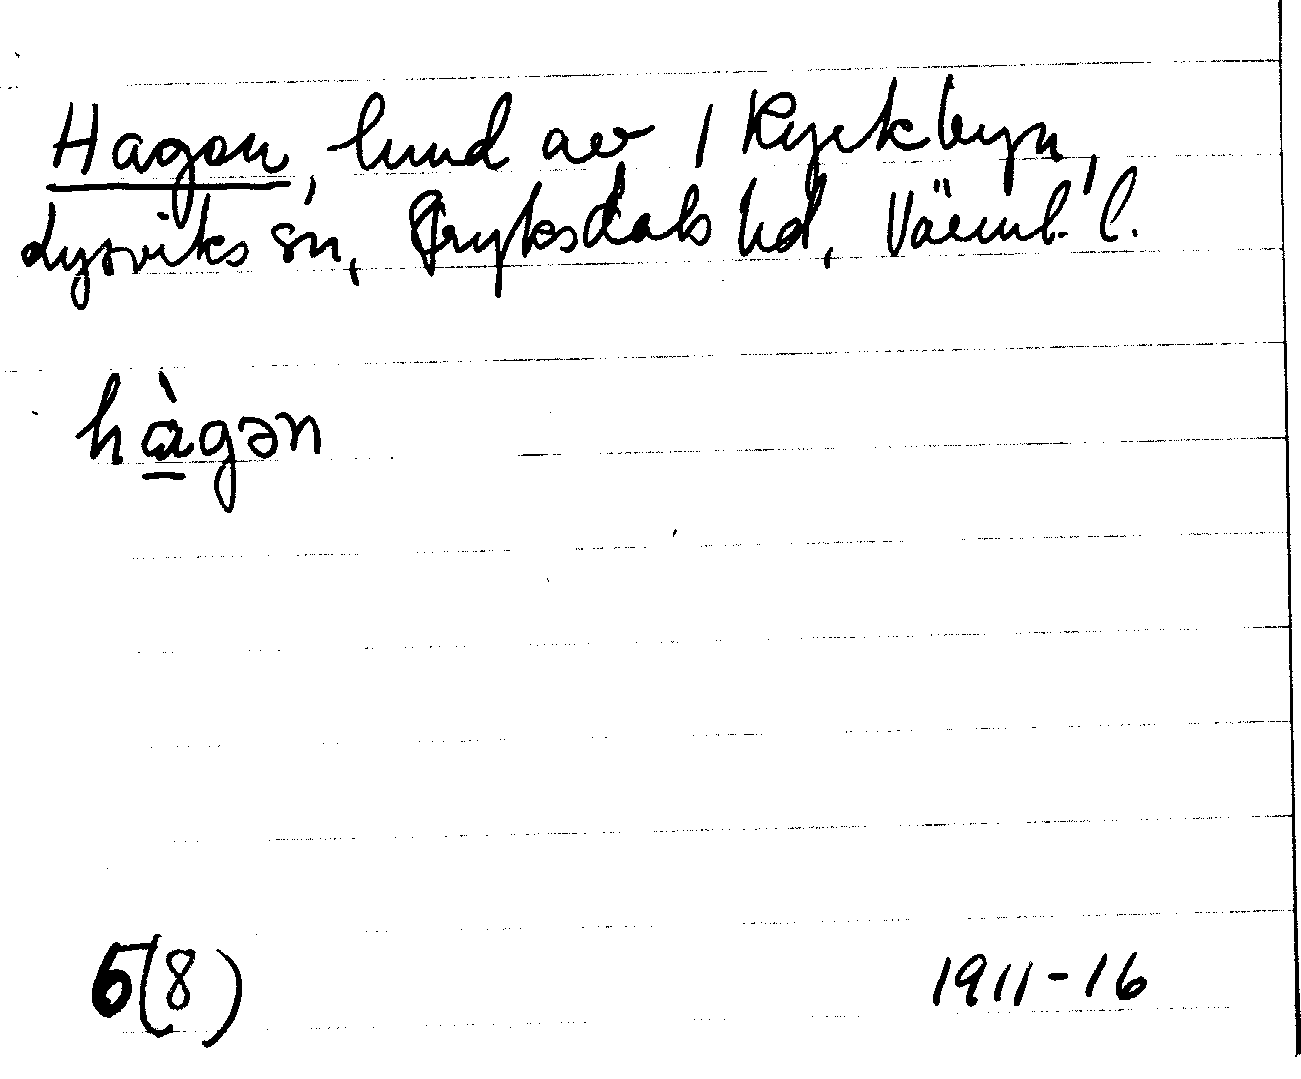 Hagen, lund av 1 Kyrkbyn,
Lysviks sn, Fryksdals hd, Värml. l.
hàgən
6(8)
1911-16